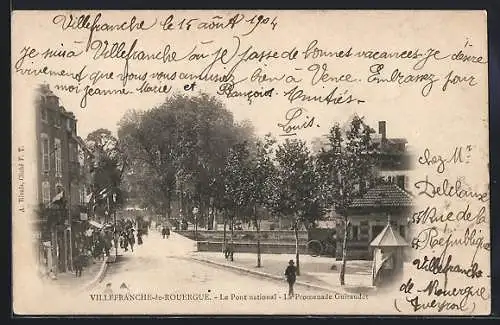 Villefranche le 15 août 1904
je suis à Villefranche où je passe de bonnes vacances. Je désire
vivement que vous vous amusiez bien a Vence. Embrassez pour
moi Jeanne Marie et François. Amitiés
Louis
chez Mr
Delclaux
rue de la
République
Villefranche
de Rouergue
(Aveyron)
A. Rivals, Cliché F. T.
VILLEFRANCHE-de-ROUERGUE. - Le Pont national - La Promenade Guiraudet